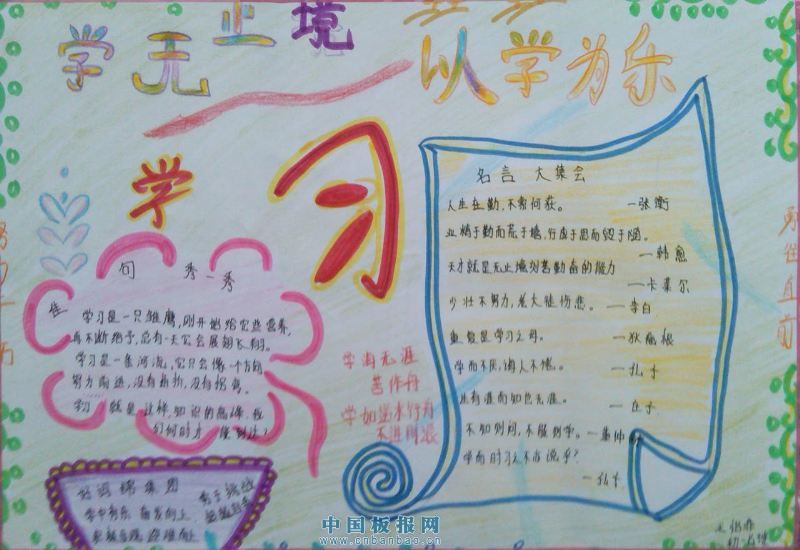 学无止境
以学为乐
学习
名言大集会
人生在勤,不索何获。
—张衡
业精于勤而荒于嬉,行成于思而毁于随。
—韩愈
天才就是无止境刻苦勤奋的能力
—卡莱尔
少壮不努力,老大徒伤悲。
—李白
重复是学习之母。
—狄慈根
学而不厌,诲人不倦。
—孔子
生有涯而知也无涯。
—庄子
不知则问,不能则学。
—董仲
学而时习之不亦说乎?
—孔子
佳句秀一秀
学习是一只雏鹰,刚开始给它些营养,
再不断给予,总有一天它会展翅飞翔。
学习是一条河流,它只会像一个方向
努力前进,没有
学习就是这样,知识的
们何时才
学海无涯
苦作舟
学如逆水行舟
不进则退
好词锦集图
奋发向上
勇往直前
中国板报网
www.cnbanbao.cn